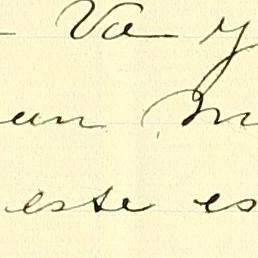 Va y
un M
este es